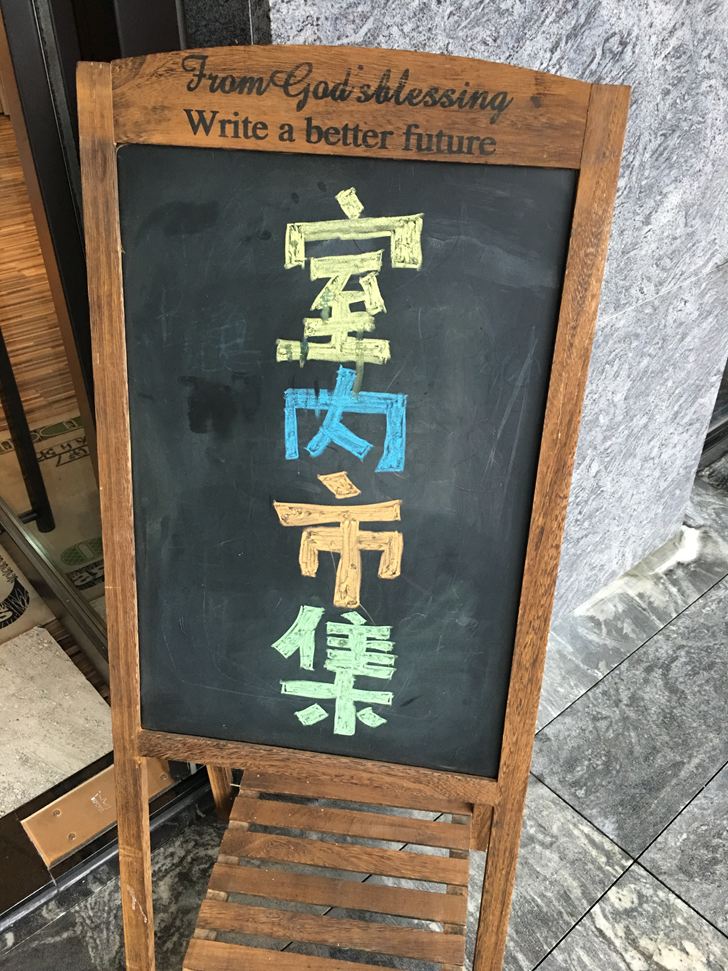 From God'sblessing
Write a better future
室內市集